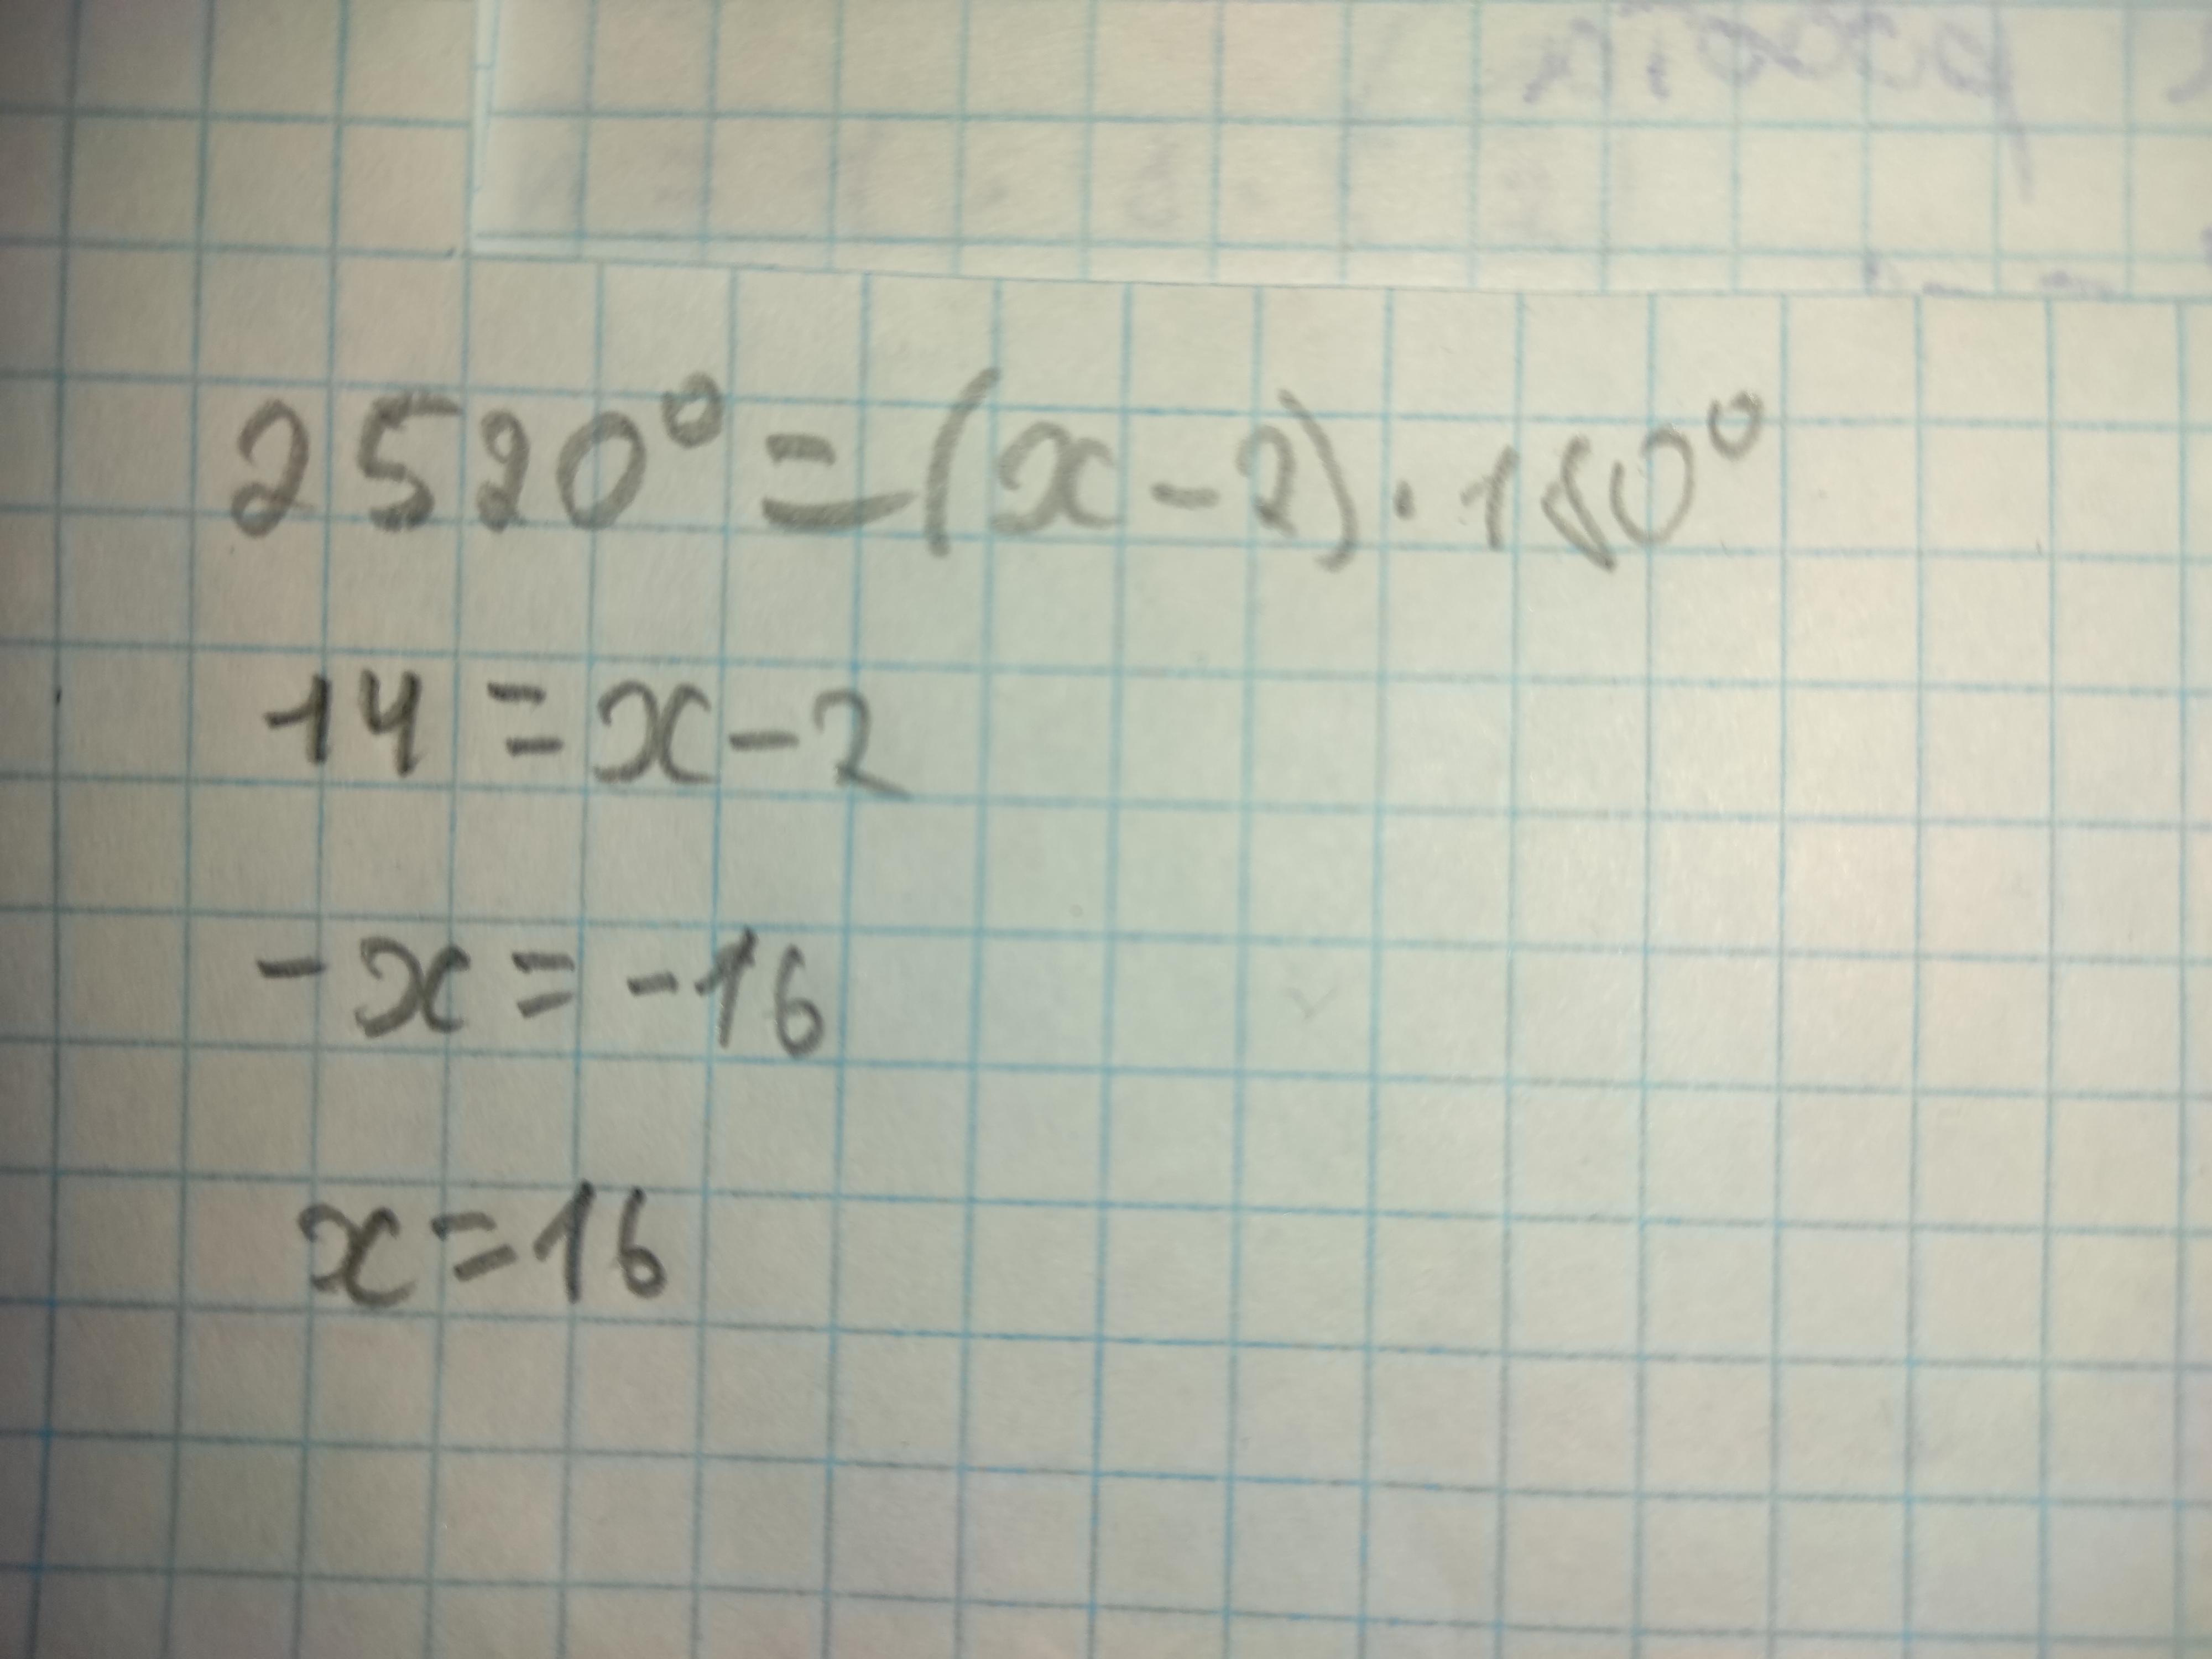 2520° = (x - 2) · 180°
14 = x - 2
- x = - 16
x = 16